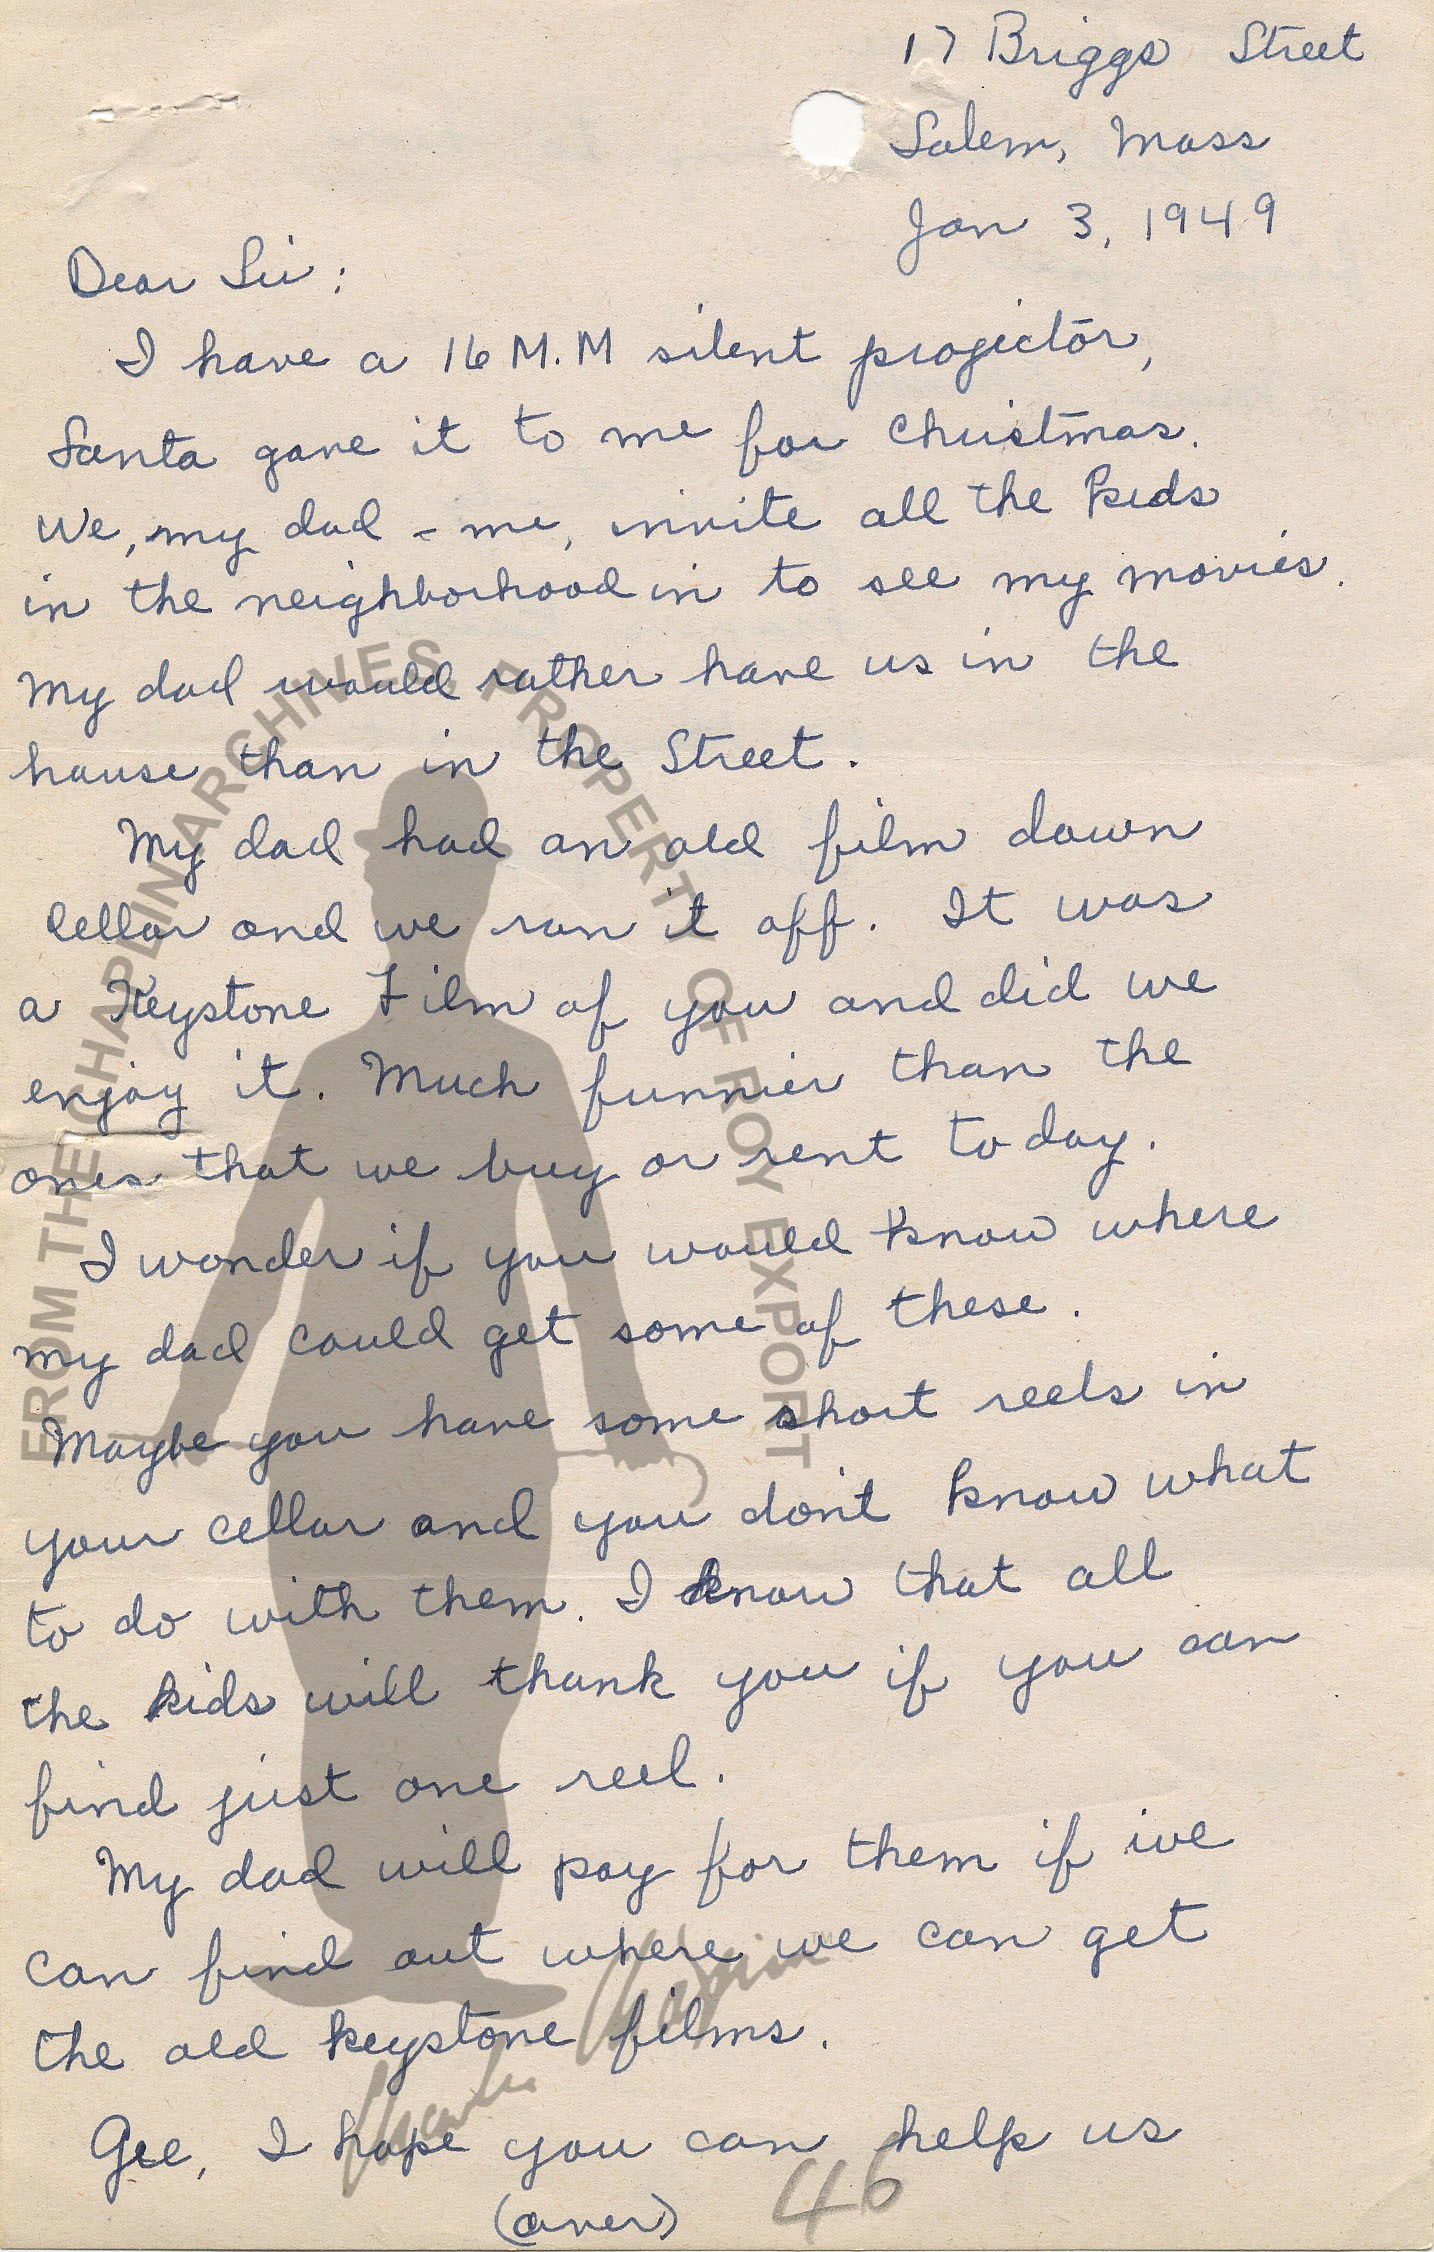 17 Briggs Street
Salem, Mass
Jan 3, 1949
Dear Sir:
I have a 16 M.M silent projector,
Santa gave it to me for Christmas.
We, my dad - me, invite all the kids
in the neighborhood in to see my movies.
My dad would rather have us in the
house than in the Street.
My dad had an old film down
Cellar and we ran it off. It was
a Keystone Film of you and did we
enjoy it. Much funnier than the
ones that we buy or rent today.
I wonder if you would know where
my dad could get some of these.
Maybe you have some short reels in
your cellar and you don't know what
to do with them. I know that all
the kids will thank you if you can
find just one reel.
My dad will pay for them if we
can find out where we can get
the old keystone films.
Gee, I hope you can help us
(over)
46
FROM THE CHAPLIN ARCHIVES, PROPERTY OF ROY EXPORT
Charlie Chaplin